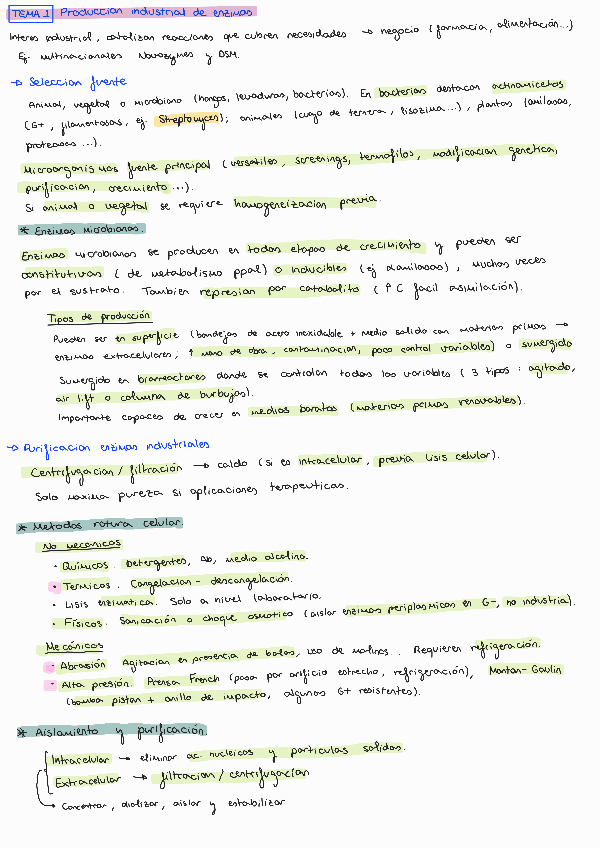 TEMA 1 Produccion industrial de enzimas
Interes industrial, catalizan reacciones que cubren necesidades → negocio (farmacia, alimentación...)
Ej. multinacionales Novozymes y DSM.
→ Seleccion fuente
Animal, vegetal o microbiano (hongos, levaduras, bacterias). En bacterias destacan actinomicetos
(G+, filamentosas, ej. Streptomyces); animales (cuajo de ternera, lisozima...), plantas (amilasas,
proteasas ...).
Microorganismos fuente principal (versatiles, screenings, termofilos, modificacion genetica,
purificacion, crecimiento ...).
Si animal o vegetal se requiere homogeneizacion previa.
* Enzimas Microbianas.
Enzimas microbianas se producen en todas etapas de crecimiento y pueden ser
constitutivas (de metabolismo ppal) o inducibles (ej amilasas), muchas veces
por el sustrato. Tambien represion por catabolito (↑C facil asimilación).
Tipos de producción
Pueden ser en superficie (bandejas de acero inoxidable + medio solido con materias primas →
enzimas extracelulares; ↑ mano de obra, contaminacion, poco control variables) o sumergido
Sumergido en biorreactores donde se controlan todas las variables (3 tipos: agitado,
air lift o columna de burbujas).
Importante capaces de crecer en medios baratos (materias primas renovables).
→ Purificacion enzimas industriales
Centrifugacion / filtración → caldo (si es intracelular, previa lisis celular).
Solo maxima pureza si aplicaciones terapeuticas.
* Metodos rotura celular.
No mecanicos
• Químicos. Detergentes, ab, medio alcalino.
• Termicos. Congelacion - descongelación.
• Lisis enzimatica. Solo a nivel laboratorio.
• Físicos. Sonicación o choque osmotico (aislar enzimas periplasmicas en G-, no industria).
Mecánicos
• Abrasión Agitacion en presencia de bolas, uso de molinos. Requieren refrigeración.
• Alta presión. Prensa French (pasa por orificio estrecho, refrigeración), Manton-Gaulin
(bomba piston + anillo de impacto, algunos G+ resistentes).
* Aislamiento y purificación.
Intracelular → eliminar ac. nucleicos y particulas solidas.
Extracelular → filtracion / centrifugacion
→ Concentrar, dializar, aislar y estabilizar